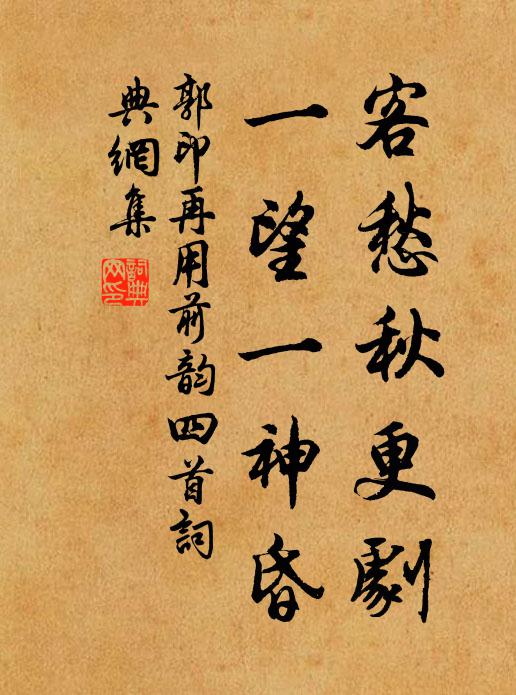 客愁秋更劇
一望一神昏
郭印再用前韵四首詞
典網集
詞典
网印